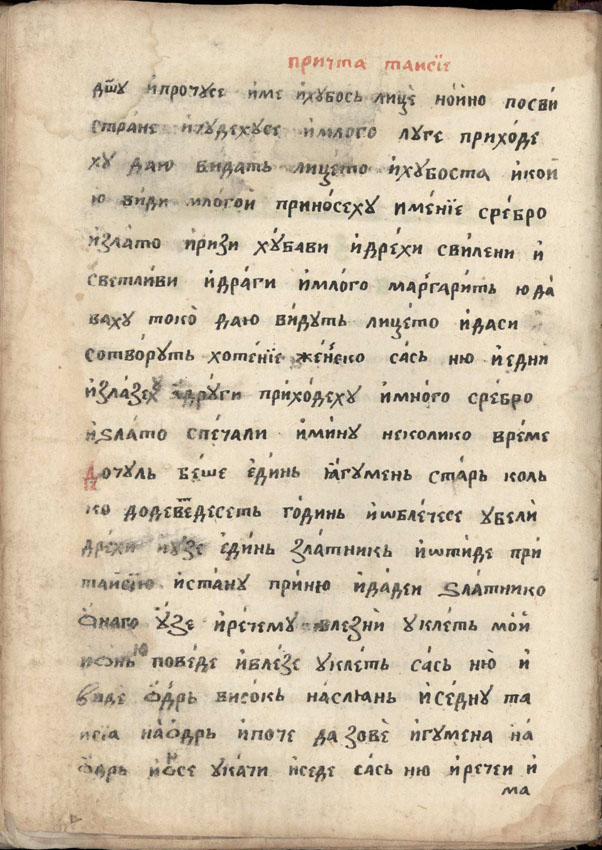 причта таисїе
дшу ѝпрочусе ѝме ѝхубось лице нойно посви
стране ѝчудехусе ѝмлого луге приходе
ху даю видать лицето ѝхубоста ѝкой
ю види млогой приносеху именїе сребро
ѝзлато ѝризи хубави ѝдрехи свилени ѝ
светливи ѝдраги ѝмлого маргарить юда
ваху токо даю видуть лицето ѝдаси
сотворуть хотенїе женско сась ню ѝедни
ѝзлазеху ѝдруги приходеху ѝмного сребро
ѝѕлато спечали ѝмину неколико време
Дочуль беше единь ѝгумень старь коль
ко додеведесеть годинь ѝѡблечесе убели
дрехи ѝузе единь златникь ѝѡтиде при
таисїю ѝстану приню ѝдадеи ѕлатнико
ѻнаго ѵзе ѝречему влезни уклеть мой
ѝѻнь ю поведе ѝвлезе уклеть сась ню ѝ
виде ѻдрь високь наслань ѝседну та
исїа наѻдрь ѝпоче дазове ѝгумена на
ѻдрь ѝѻнсе укачи ѝседе сась ню ѝречеи ѝ
ма